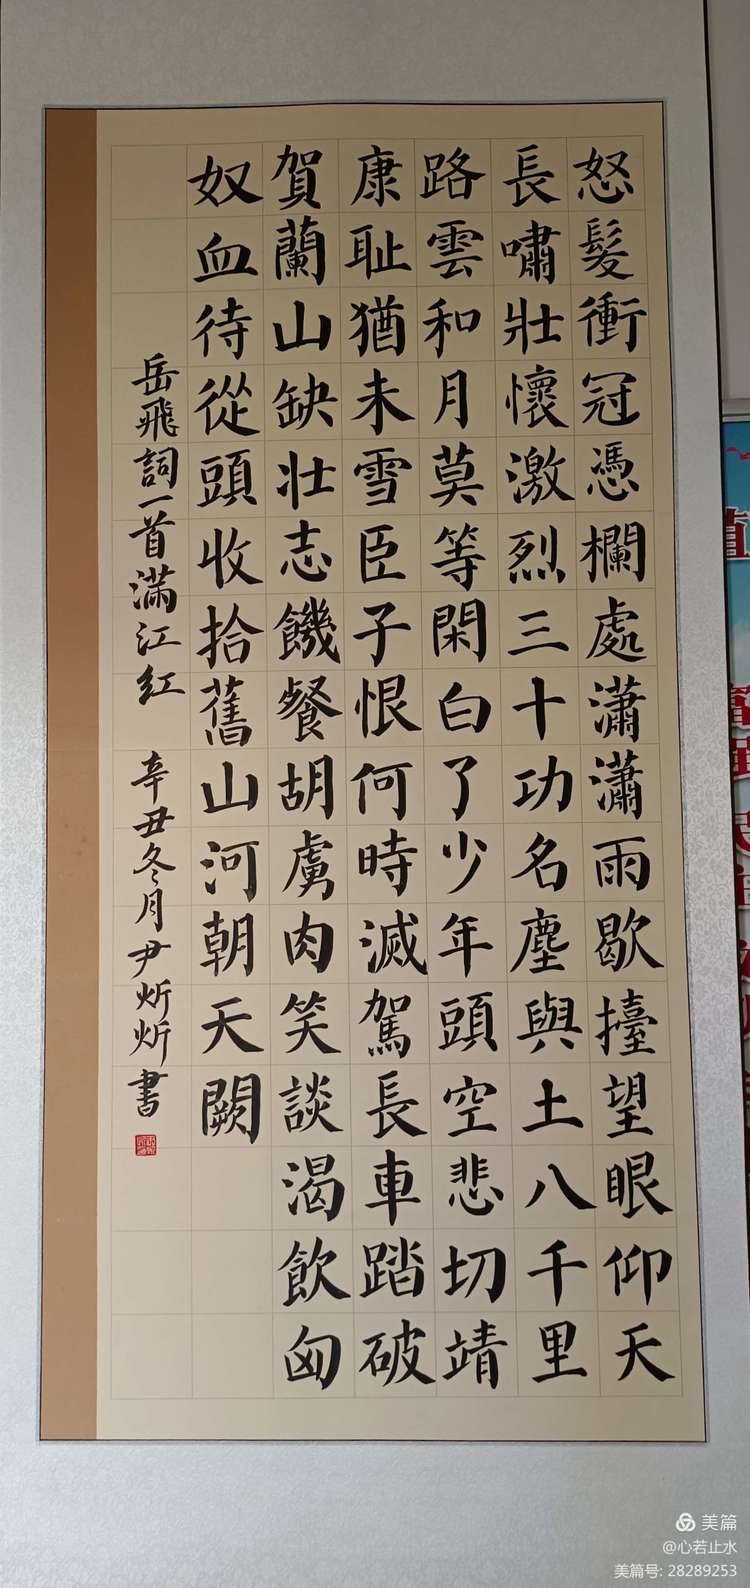 怒髮衝冠憑欄處瀟瀟雨歇擡望眼仰天
長嘯壯懷激烈三十功名塵與土八千里
路雲和月莫等閑白了少年頭空悲切靖
康耻猶未雪臣子恨何時滅駕長車踏破
賀蘭山缺壮志饑餐胡虜肉笑談渴飲匈
奴血待從頭收拾舊山河朝天闕
岳飛詞一首满江红 辛丑冬月尹炘炘書
美篇
@心若止水
美篇号: 28289253